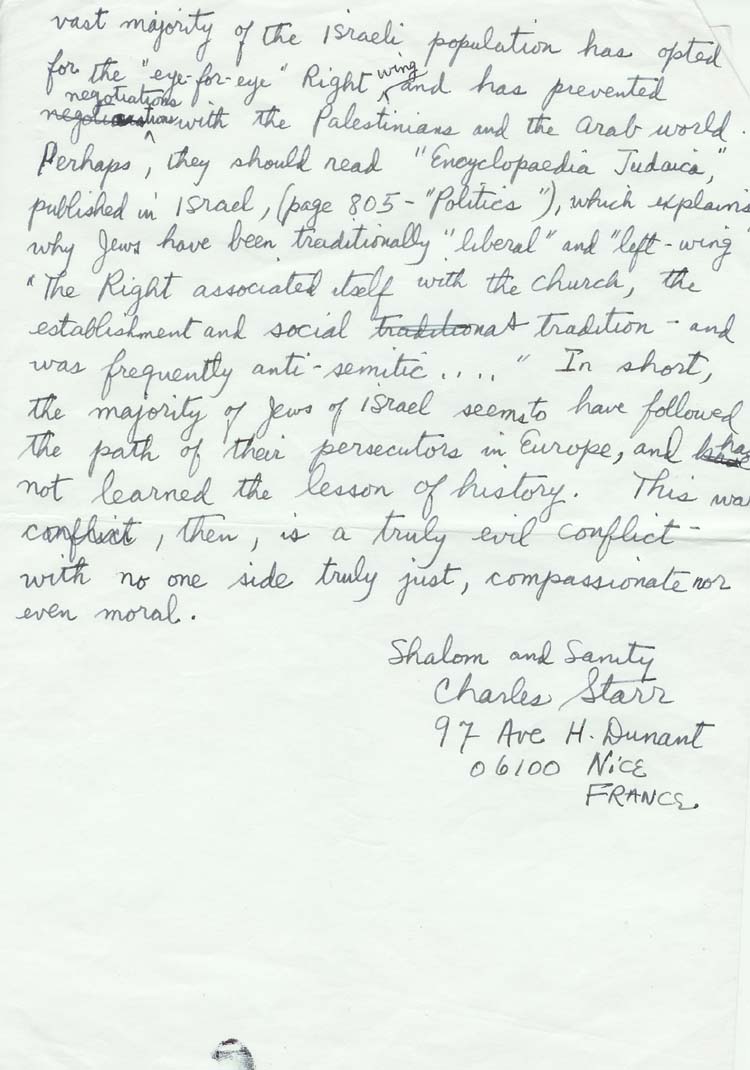 vast majority of the Israeli population has opted
for the "eye-for-eye" Right wing and has prevented
negotiations with the Palestinians and the Arab world.
Perhaps, they should read "Encyclopaedia Judaica,"
published in Israel, (page 805 - "Politics"), which explains
why Jews have been traditionally "liberal" and "left-wing"
"The Right associated itself with the church, the
establishment and social traditional tradition - and
was frequently anti-semitic . . . . " In short,
the majority of Jews of Israel seems to have followed
the path of their persecutors in Europe, and has
not learned the lesson of history. This war
conflict, then, is a truly evil conflict -
with no one side truly just, compassionate nor
even moral.
Shalom and Sanity
Charles Starr
97 Ave H. Dunant
06100 Nice
FRANCE.